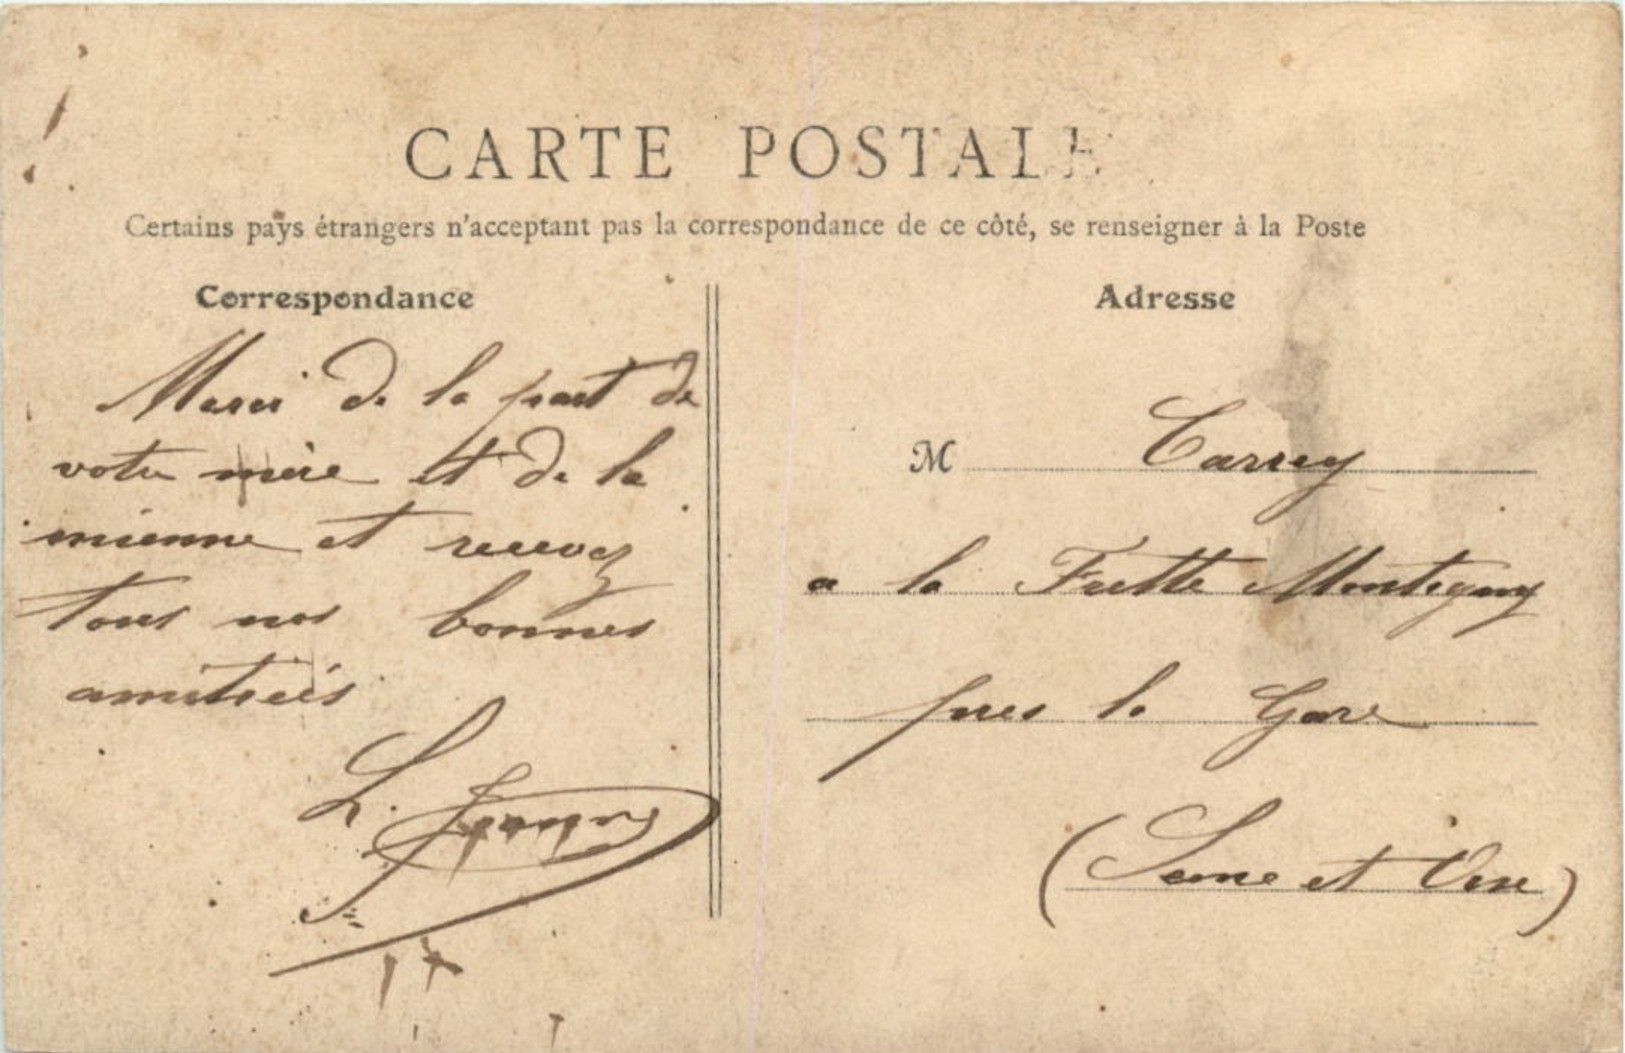 CARTE POSTALE
Certains pays étrangers n'acceptant pas la correspondance de ce côté, se renseigner à la Poste
Correspondance
Merci de la part de
votre mère et de la
mienne et recevez
tous nos bonnes
amitiés
L.
Adresse
M Carrey
a la Frette Montigny
pres la Gare
(Seine et Oise)